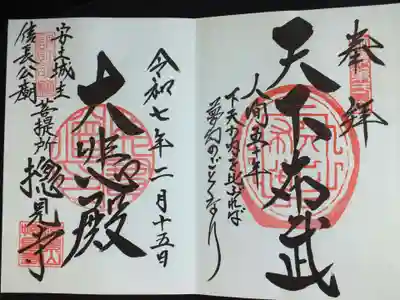 奉拝
天下布武
人間五十年
下天の内をくらぶれば
夢幻のごとくなり
令和七年二月十五日
大悲殿
安土城主
信長公廟
菩提所
摠見寺